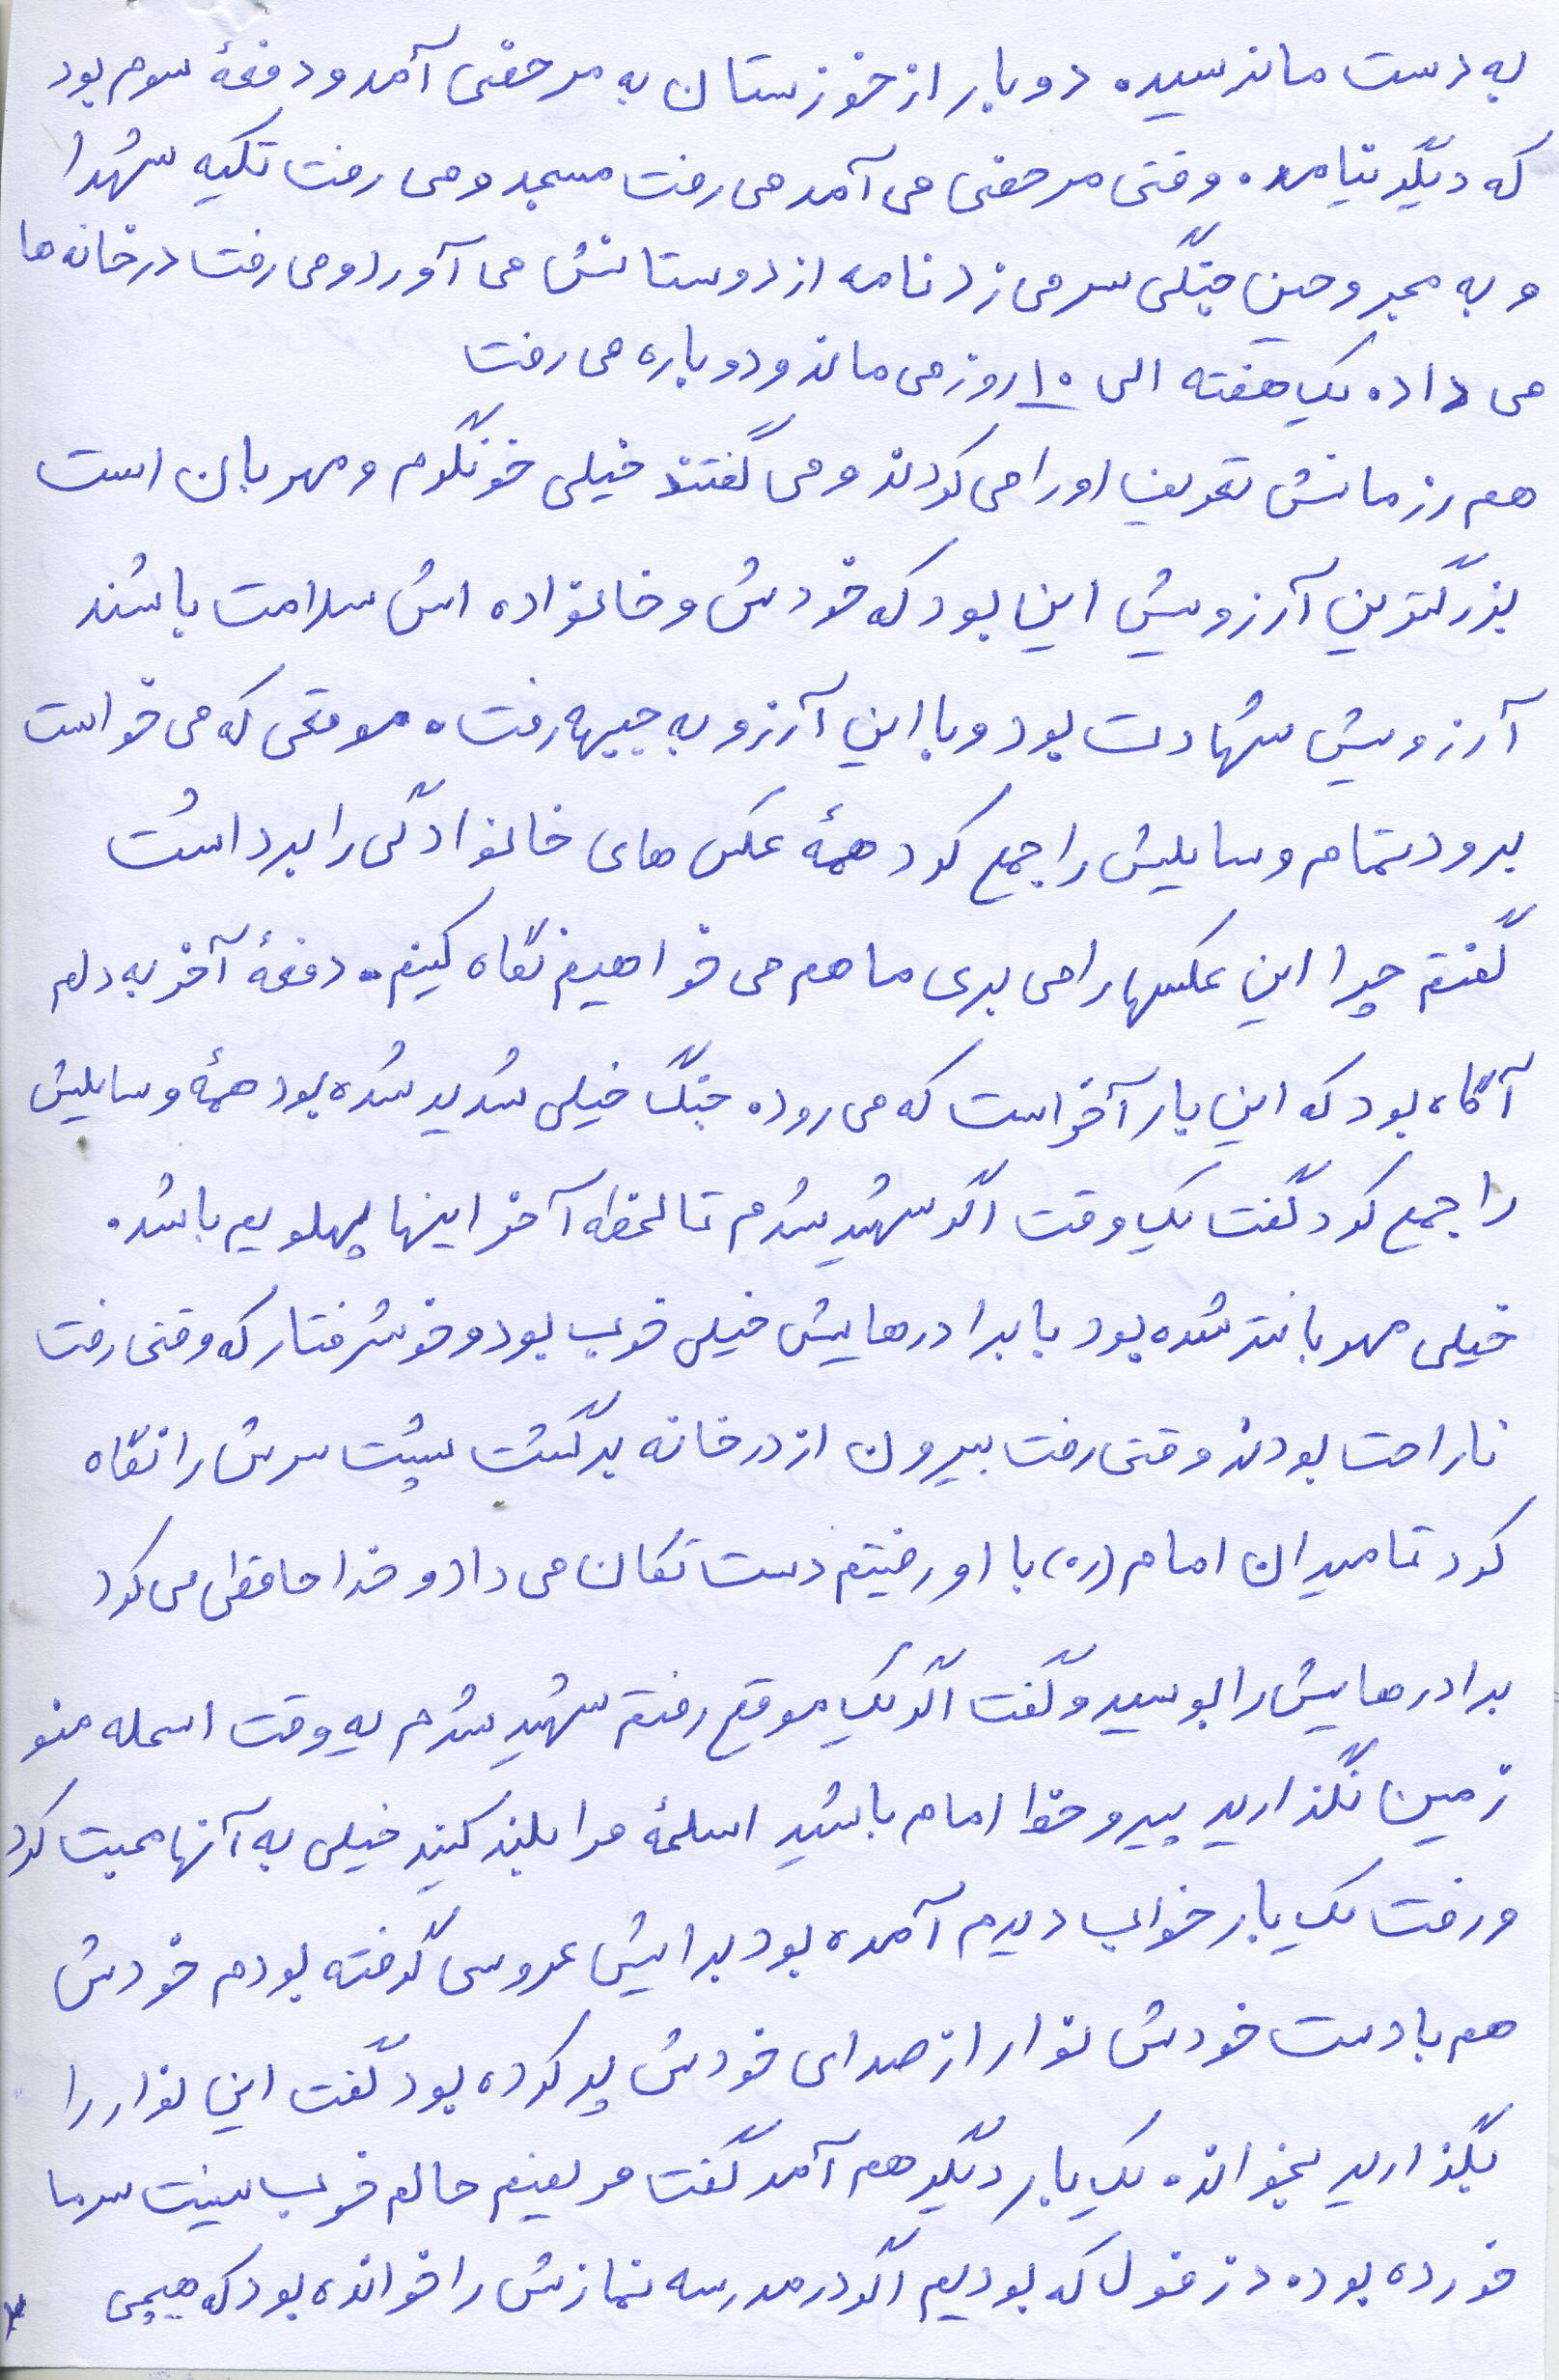 به دست ما نرسید. دوبار از خوزستان به مرخصی آمد و دفعهٔ سوم بود
که دیگر نیامد. وقتی مرخصی می آمد می رفت مسجد و می رفت تکیه شهدا
و به مجروحین جنگی سر می زد نامه از دوستانش می آورد و می رفت در خانه ها
می داد. یک هفته الی ۱۰ روز می ماند و دوباره می رفت
هم رزمانش تعریف او را می کردند و می گفتند خیلی خونگرم و مهربان است
بزرگترین آرزویش این بود که خودش و خانواده اش سلامت باشند
آرزویش شهادت بود و با این آرزو به جبهه رفت. موقعی که می خواست
برود تمام وسایلش را جمع کرد همهٔ عکس های خانوادگی را برداشت
گفتم چرا این عکسها را می بری ما هم می خواهیم نگاه کنیم. دفعهٔ آخر به دلم
آگاه بود که این بار آخر است که می رود. جنگ خیلی شدید شده بود همهٔ وسایلش
را جمع کرد گفت یک وقت اگر شهید شدم تا لحظه آخر اینها پهلویم باشد.
خیلی مهربانتر شده بود با برادرهایش خیلی خوب بود و خوشرفتار که وقتی رفت
ناراحت بودند وقتی رفت بیرون از در خانه برگشت پشت سرش را نگاه
کرد تا میدان امام (ره) با او رفتیم دست تکان می داد و خدا حافظی می کرد
برادرهایش را بوسید و گفت اگر یک موقع رفتم شهید شدم یه وقت اسلحه منو
زمین نگذارید پیرو خط امام باشید اسلحهٔ مرا بلند کنید خیلی به آنها محبت کرد
و رفت یک بار خواب دیدم آمده بود برایش عروسی گرفته بودم خودش
هم با دست خودش نوار از صدای خودش پر کرده بود گفت این نوار را
بگذارید بخواند. یک بار دیگر هم آمد گفت مریضم حالم خوب نیست سرما
خورده بود. دزفول که بودیم اگر در مدرسه نمازش را خوانده بود که هیچی